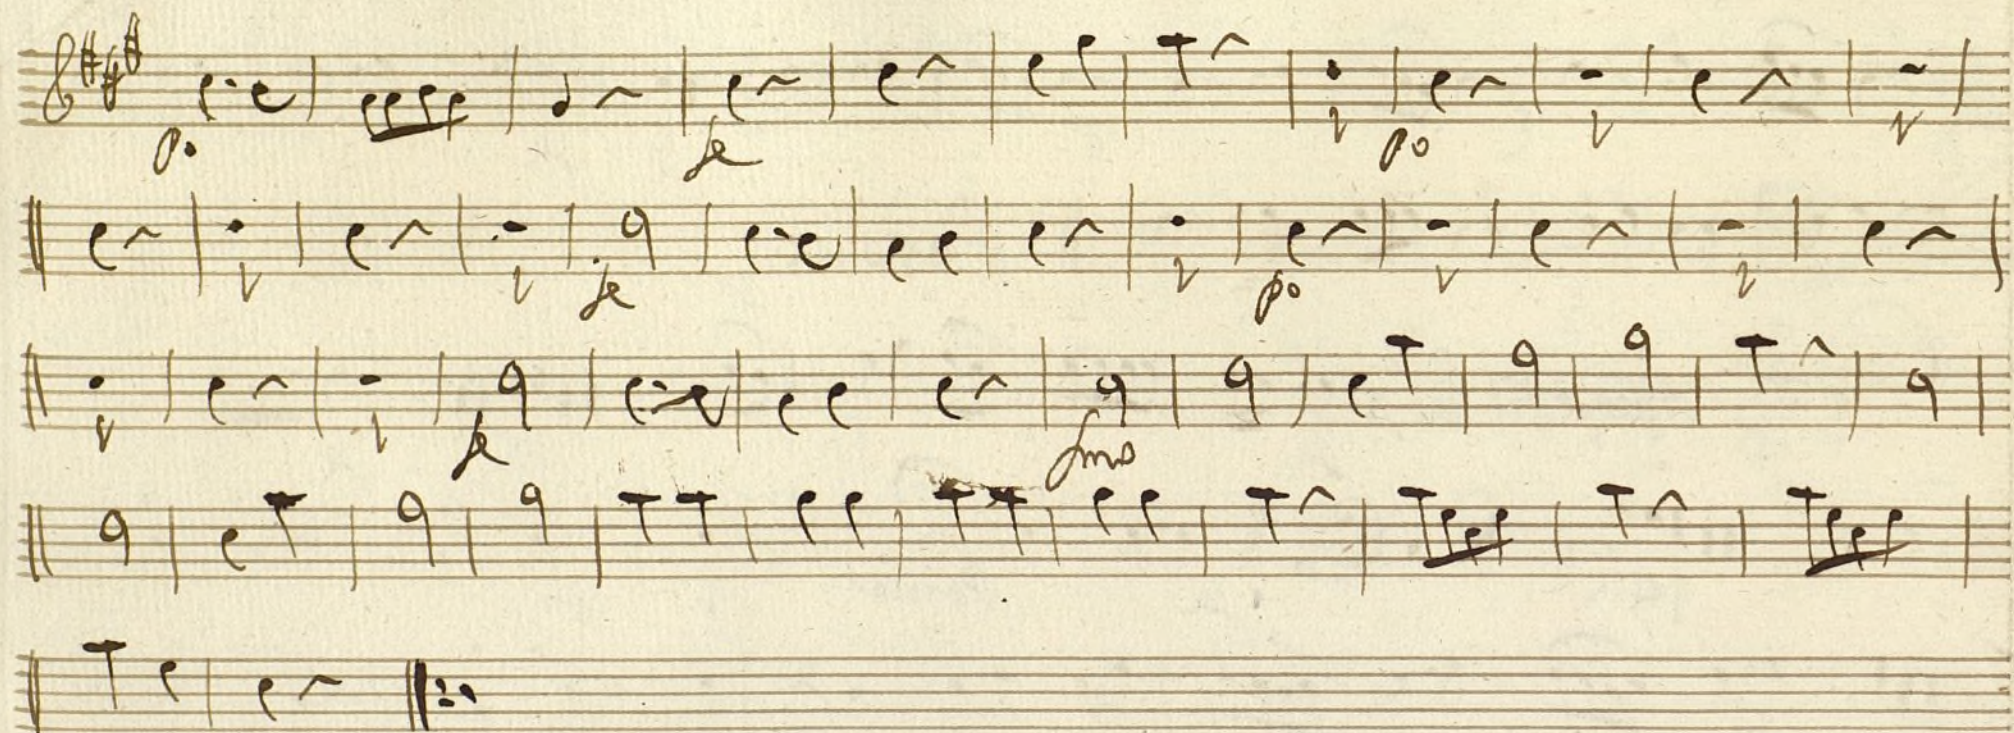 p. fe po
fe po
fe fmo